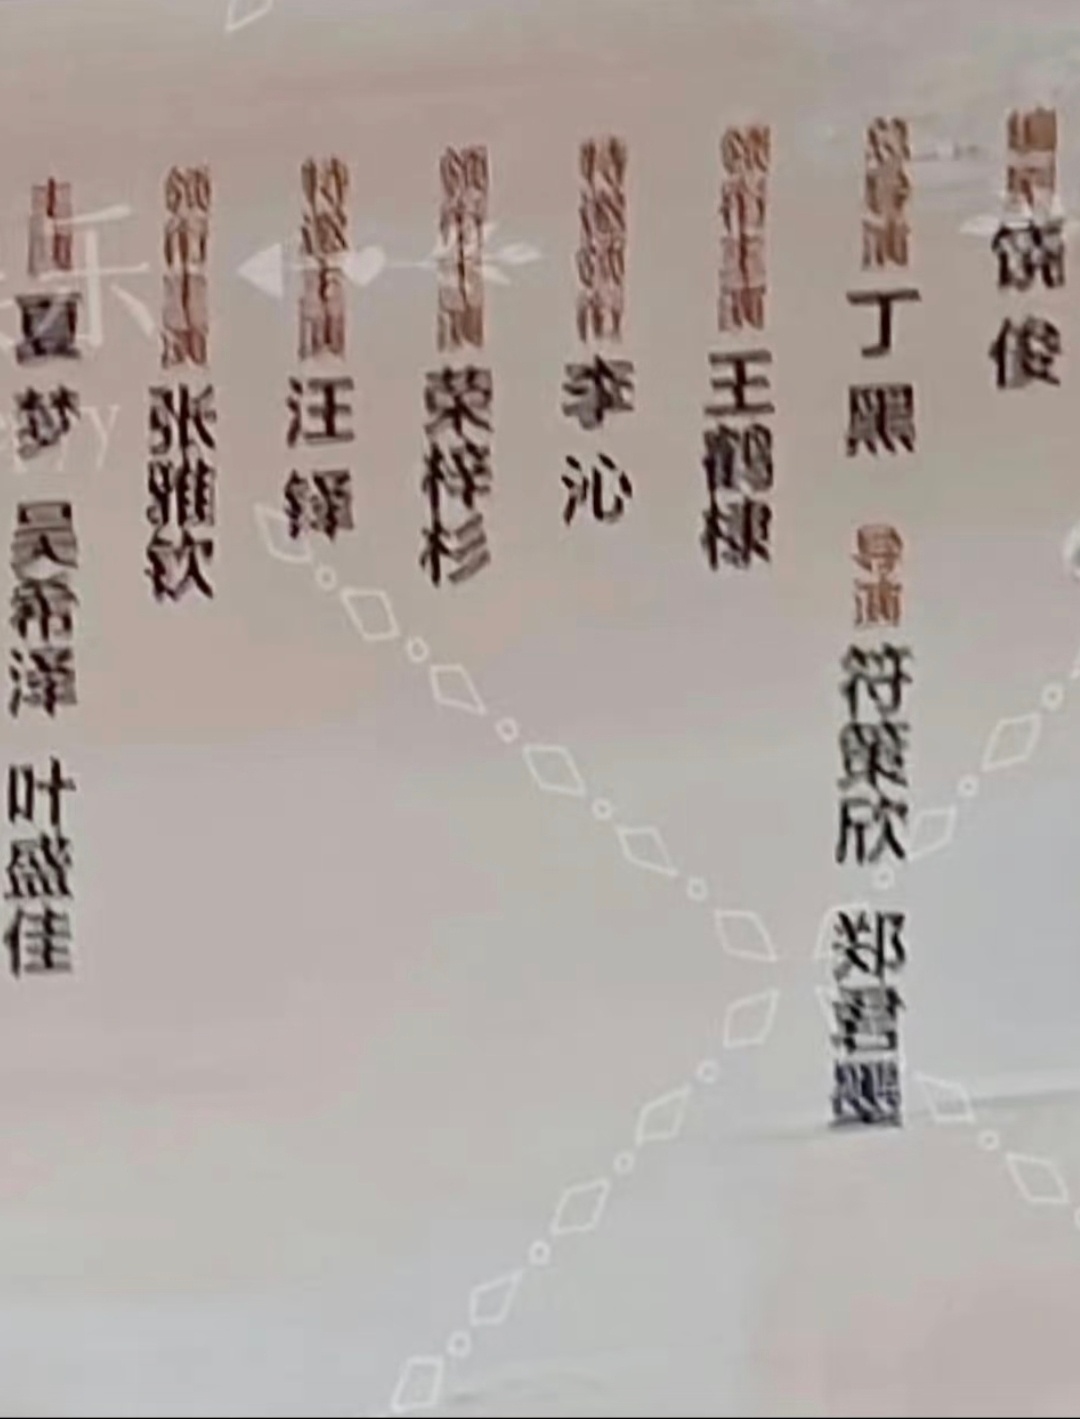 编剧 饶俊
总导演 丁黑 导演 符策欣 郑君墨
领衔主演 王鹤棣
特邀领衔 李沁
领衔主演 荣梓杉
特邀主演 汪铎
领衔主演 张雅钦
主演 夏梦 吴希泽 叶盛佳
乐